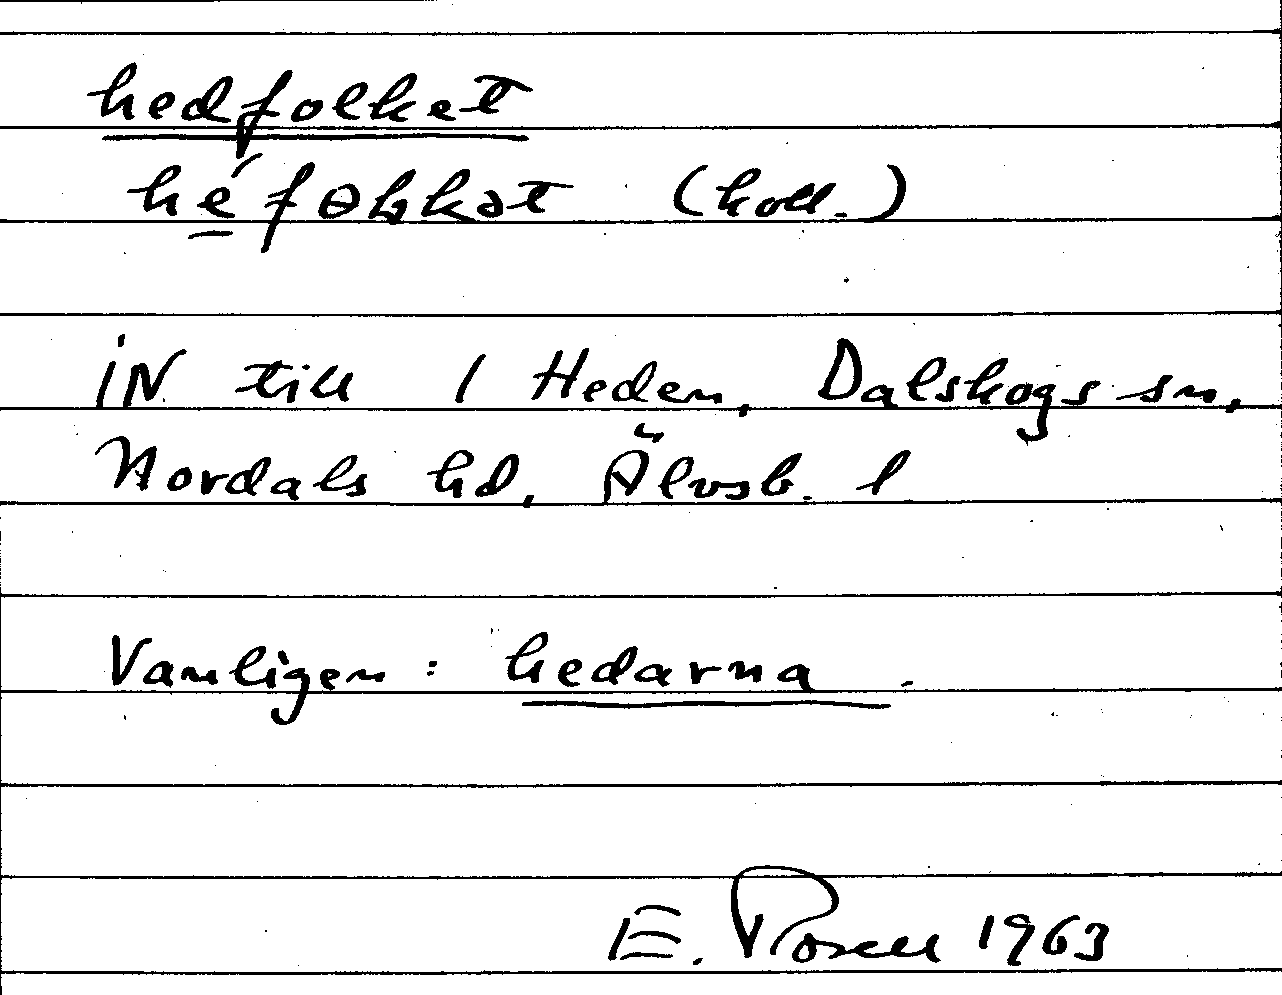 hedfolket
héfɵḷkət (koll.)
iN till 1 Heden, Dalskogs sn,
Nordals hd, Älvsb. l
Vanligen: hedarna.
E. Rosell 1963